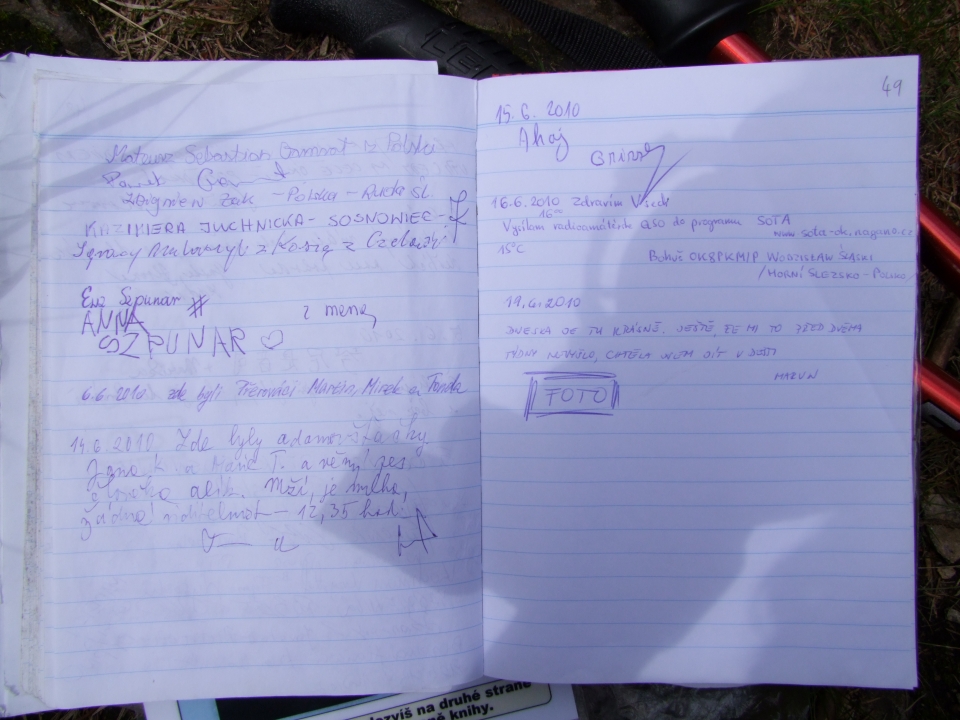 Mateusz Sebastian Gamrat z Polski
Paweł
Zbigniew Żak - Polska - Ruda Śl.
KAZIMIERA JUCHNICKA - SOSNOWIEC -
Ignacy z Kozią z Czeladzi
Ewa Szpunar #
ANNA
SZPUNAR ♡
z meną
6.6.2010 zde byli Třernáčci Martin, Mirek a Tonda
14.6.2010 Zde byly adamovšťačky
Jana K. a Marie T. a věrný pes
člověka alík. Mží, je mlha,
žádná viditelnost - 12,35 hod.
49
15.6.2010
Ahoj
16.6.2010 Zdravím Všech
16⁰⁰
Vysílám radioamatérské QSO do programu SOTA
www.sota-ok.nagano.cz
15°C
Bohuš OK8PKM/P WODZISŁAW ŚLĄSKI
/HORNÍ SLEZSKO - POLSKO/
19.6.2010
DNESKA JE TU KRÁSNĚ. JEŠTĚ, ŽE MI TO PŘED DVĚMA
TÝDNY NEVYŠLO, CHTĚLA JSEM JÍT V DEŠTI
FOTO
na druhé straně
knihy.